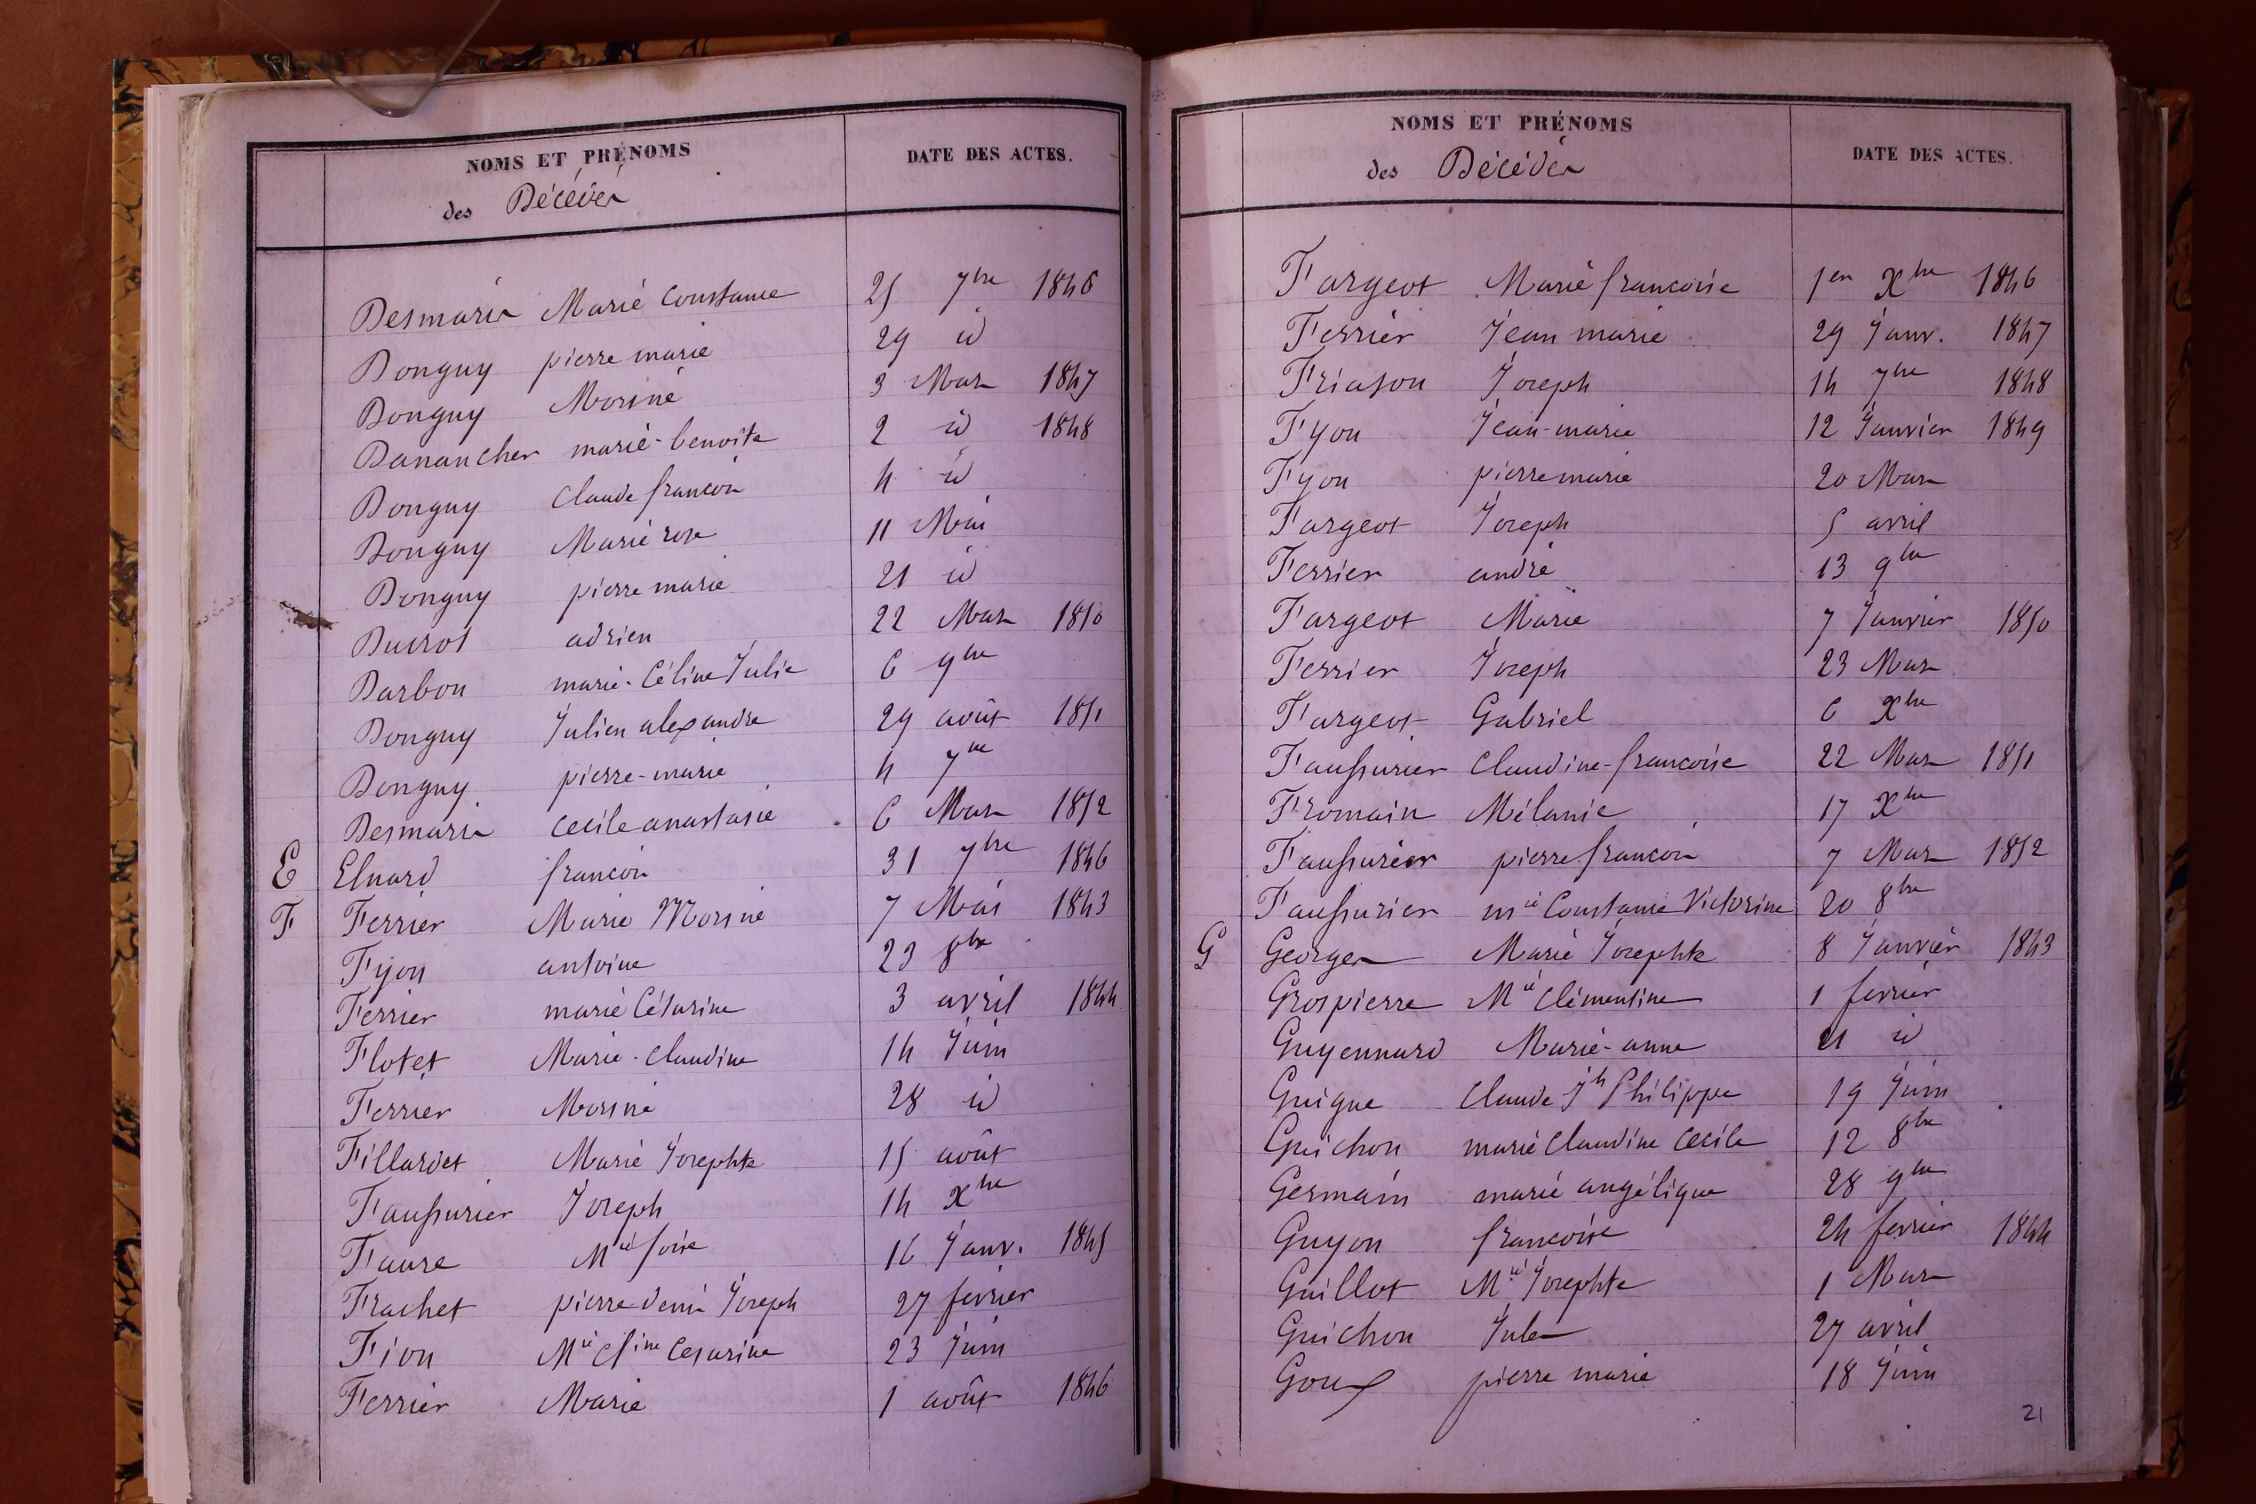 NOMS ET PRÉNOMS DATE DES ACTES.
des Décédés
Desmaris Marie Constance 25 7bre 1846
Donguy pierre marie 29 id
Donguy Morine 3 Mars 1847
Danancher marie-benoite 2 id 1848
Donguy Claude françois 4 id
Donguy Marie rose 11 Mai
Donguy pierre marie 21 id
Ducrot adrien 22 Mars 1850
Darbon marie-Céline Julie 6 9bre
Donguy Julien alexandre 29 août 1851
Donguy pierre-marie 4 7bre
Desmaris Cecile anastasie 6 Mars 1852
E Elnard françois 31 7bre 1846
F Ferrier Marie Morine 7 Mai 1843
Fyon antoine 23 8bre
Ferrier marie Césarine 3 avril 1844
Flotet Marie-Claudine 14 Juin
Ferrier Morine 28 id
Fillardet Marie Josephte 15 août
Faussurier Joseph 14 Xbre
Faure Mie foise 16 Janv. 1845
Frachet pierre denis Joseph 27 fevrier
Fion Mie Cline Cesarine 23 Juin
Ferrier Marie 1 août 1846
NOMS ET PRÉNOMS DATE DES ACTES.
des Décédés
Fargeot Marie françoise 1er Xbre 1846
Ferrier Jean marie 29 Janv. 1847
Friason Joseph 14 7bre 1848
Fyon Jean-marie 12 Janvier 1849
Fyon pierre marie 20 Mars
Fargeot Joseph 5 avril
Ferrier andré 13 9bre
Fargeot Marie 7 Janvier 1850
Ferrier Joseph 23 Mars
Fargeot Gabriel 6 Xbre
Faussurier Claudine-françoise 22 Mars 1851
Fromain Mélanie 17 Xbre
Faussurier pierre françois 7 Mars 1852
Faussurier mie Constance Victorine 20 8bre
G Georges Marie Josephte 8 Janvier 1843
Grospierre Mie Clémentine 1 fevrier
Guyennard Marie-anne 21 id
Guigue Claude Jh Philippe 19 Juin
Guichon marie Claudine Cecile 12 8bre
Germain marie angélique 28 9bre
Guyon françoise 24 fevrier 1844
Guillot Mie Josephte 1 Mars
Guichon Jules 27 avril
Goux pierre marie 18 Juin
21